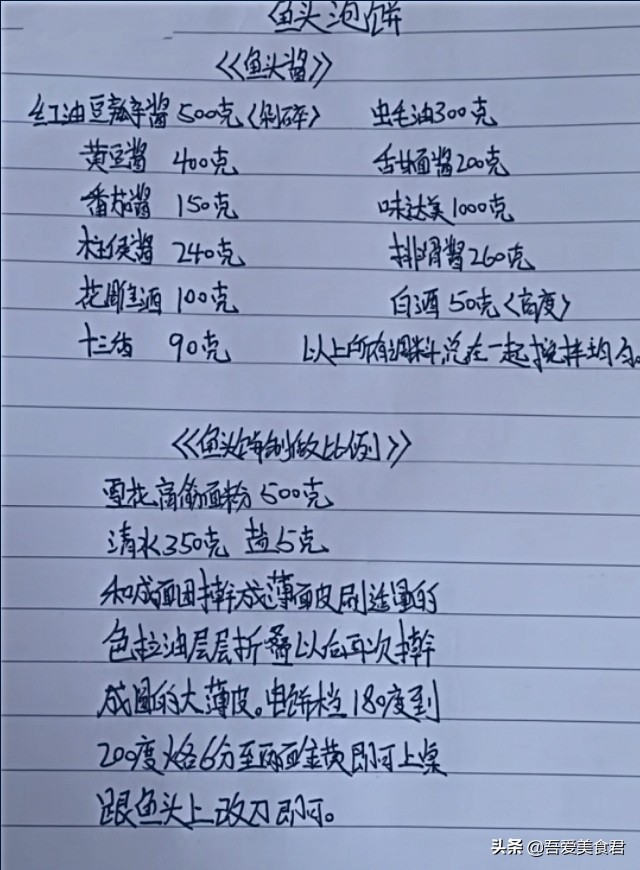 鱼头泡饼
《鱼头酱》
红油豆瓣酱 500克〈剁碎〉 虫毛油300克
黄豆酱 400克 甜面酱200克
番茄酱 150克 味达美1000克
柱侯酱 240克 排骨酱260克
花雕酒 100克 白酒50克〈高度〉
十三香 90克 以上所有调料总在一起搅拌均匀。
《鱼头饼制做比例》
雪花高筋面粉500克
清水350克 盐5克
和成面团擀成薄面皮刷适量的
色拉油层层折叠以后再次擀
成圆的大薄皮。电饼档180度到
200度烙6分至两面金黄即可上桌
跟鱼头上改刀即可。
头条 @吾爱美食君